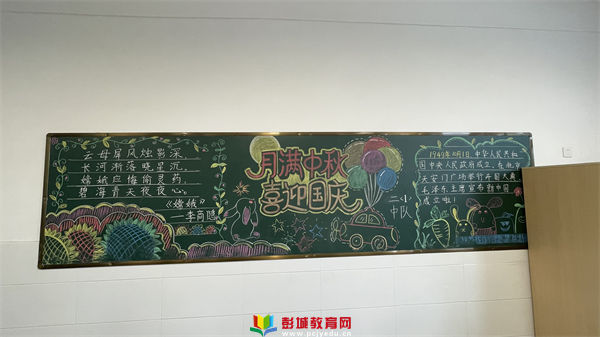 云母屏风烛影深,
长河渐落晓星沉。
嫦娥应悔偷灵药,
碧海青天夜夜心。
《嫦娥》
—李商隐
月满中秋
喜迎国庆
二(
中队
1949年10月1日,中华人民共和
国中央人民政府成立,在北京
天安门广场举行开国大典,
毛泽东主席宣布新中国
成立啦!
彭城教育网
www.pcjyedu.cn